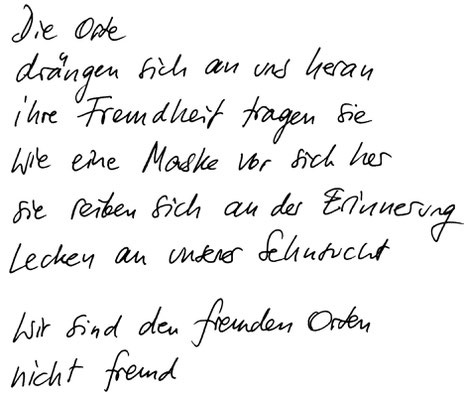 Die Orte
drängen sich an uns heran
ihre Fremdheit tragen sie
wie eine Maske vor sich her
sie reiben sich an der Erinnerung
lecken an unserer Sehnsucht
wir sind den fremden Orten
nicht fremd